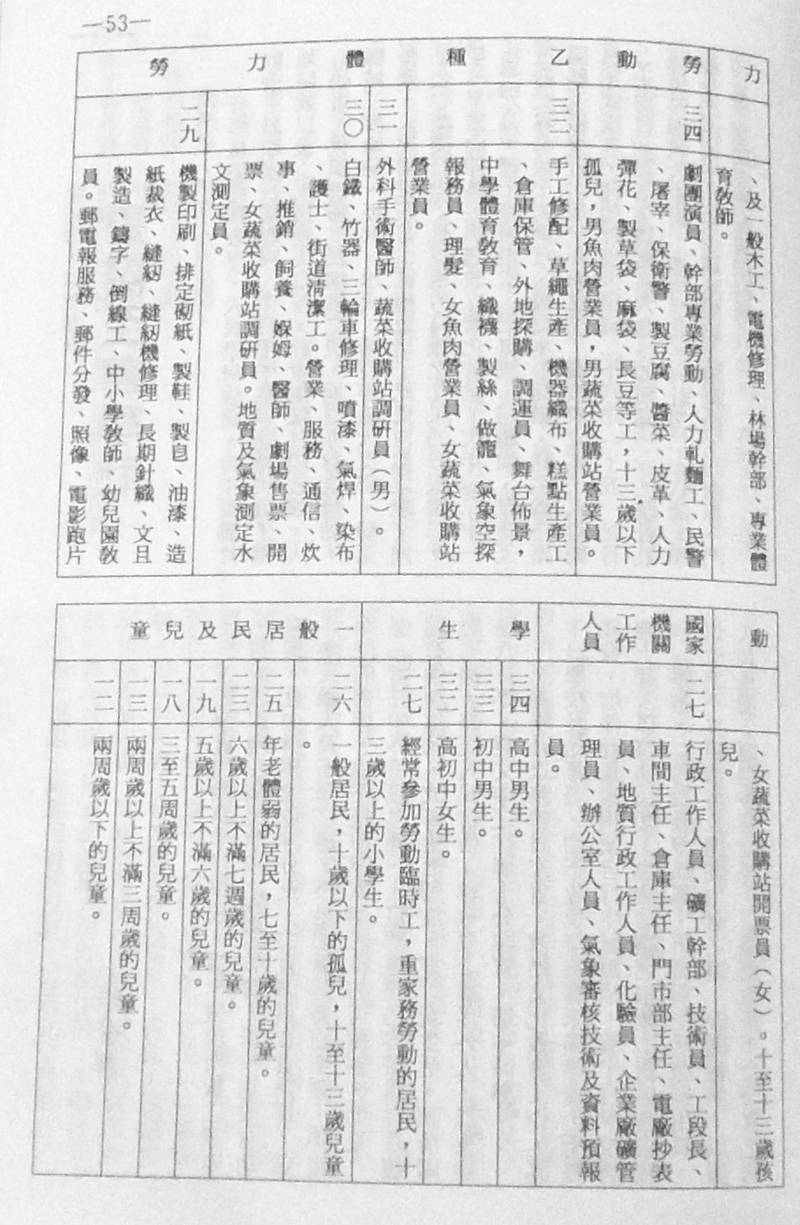 —53—
力
、及一般木工、電機修理、林場幹部、專業體
育教師。
勞動乙種體力勞
三四
劇團演員、幹部專業勞動、人力軋麵工、民警
、屠宰、保衛警、製豆腐、醬菜、皮革、人力
彈花、製草袋、麻袋、長豆等工，十三歲以下
孤兒，男魚肉營業員，男蔬菜收購站營業員。
三二
手工修配、草繩生產、機器織布、糕點生產工
、倉庫保管、外地採購、調運員、舞台佈景，
中學體育教育、織襪、製絲、做籠、氣象空探
報務員、理髮、女魚肉營業員、女蔬菜收購站
營業員。
三一
外科手術醫師、蔬菜收購站調研員（男）。
三〇
白鐵、竹器、三輪車修理、噴漆、氣焊、染布
、護士、街道清潔工。營業、服務、通信、炊
事、推銷、飼養、媬姆、醫師、劇場售票、開
票、女蔬菜收購站調研員。地質及氣象測定水
文測定員。
二九
機製印刷、排定砌紙、製鞋、製皂、油漆、造
紙裁衣、縫紉、縫紉機修理、長期針織、文且
製造、鑄字、倒線工、中小學教師、幼兒園教
員。郵電報服務、郵件分發、照像、電影跑片
動
、女蔬菜收購站開票員（女）。十至十三歲孩
兒。
國家
機關
工作
人員
二七
行政工作人員、礦工幹部、技術員、工段長、
車間主任、倉庫主任、門市部主任、電廠抄表
員、地質行政工作人員、化驗員、企業廠礦管
理員、辦公室人員、氣象審核技術及資料預報
員。
學生
三四
高中男生。
三三
初中男生。
三二
高初中女生。
二七
經常參加勞動臨時工，重家務勞動的居民，十
三歲以上的小學生。
一般居民及兒童
二六
一般居民，十歲以下的孤兒，十至十三歲兒童
。
二五
年老體弱的居民，七至十歲的兒童。
二三
六歲以上不滿七週歲的兒童。
一九
五歲以上不滿六歲的兒童。
一八
三至五周歲的兒童。
一三
兩周歲以上不滿三周歲的兒童。
一二
兩周歲以下的兒童。